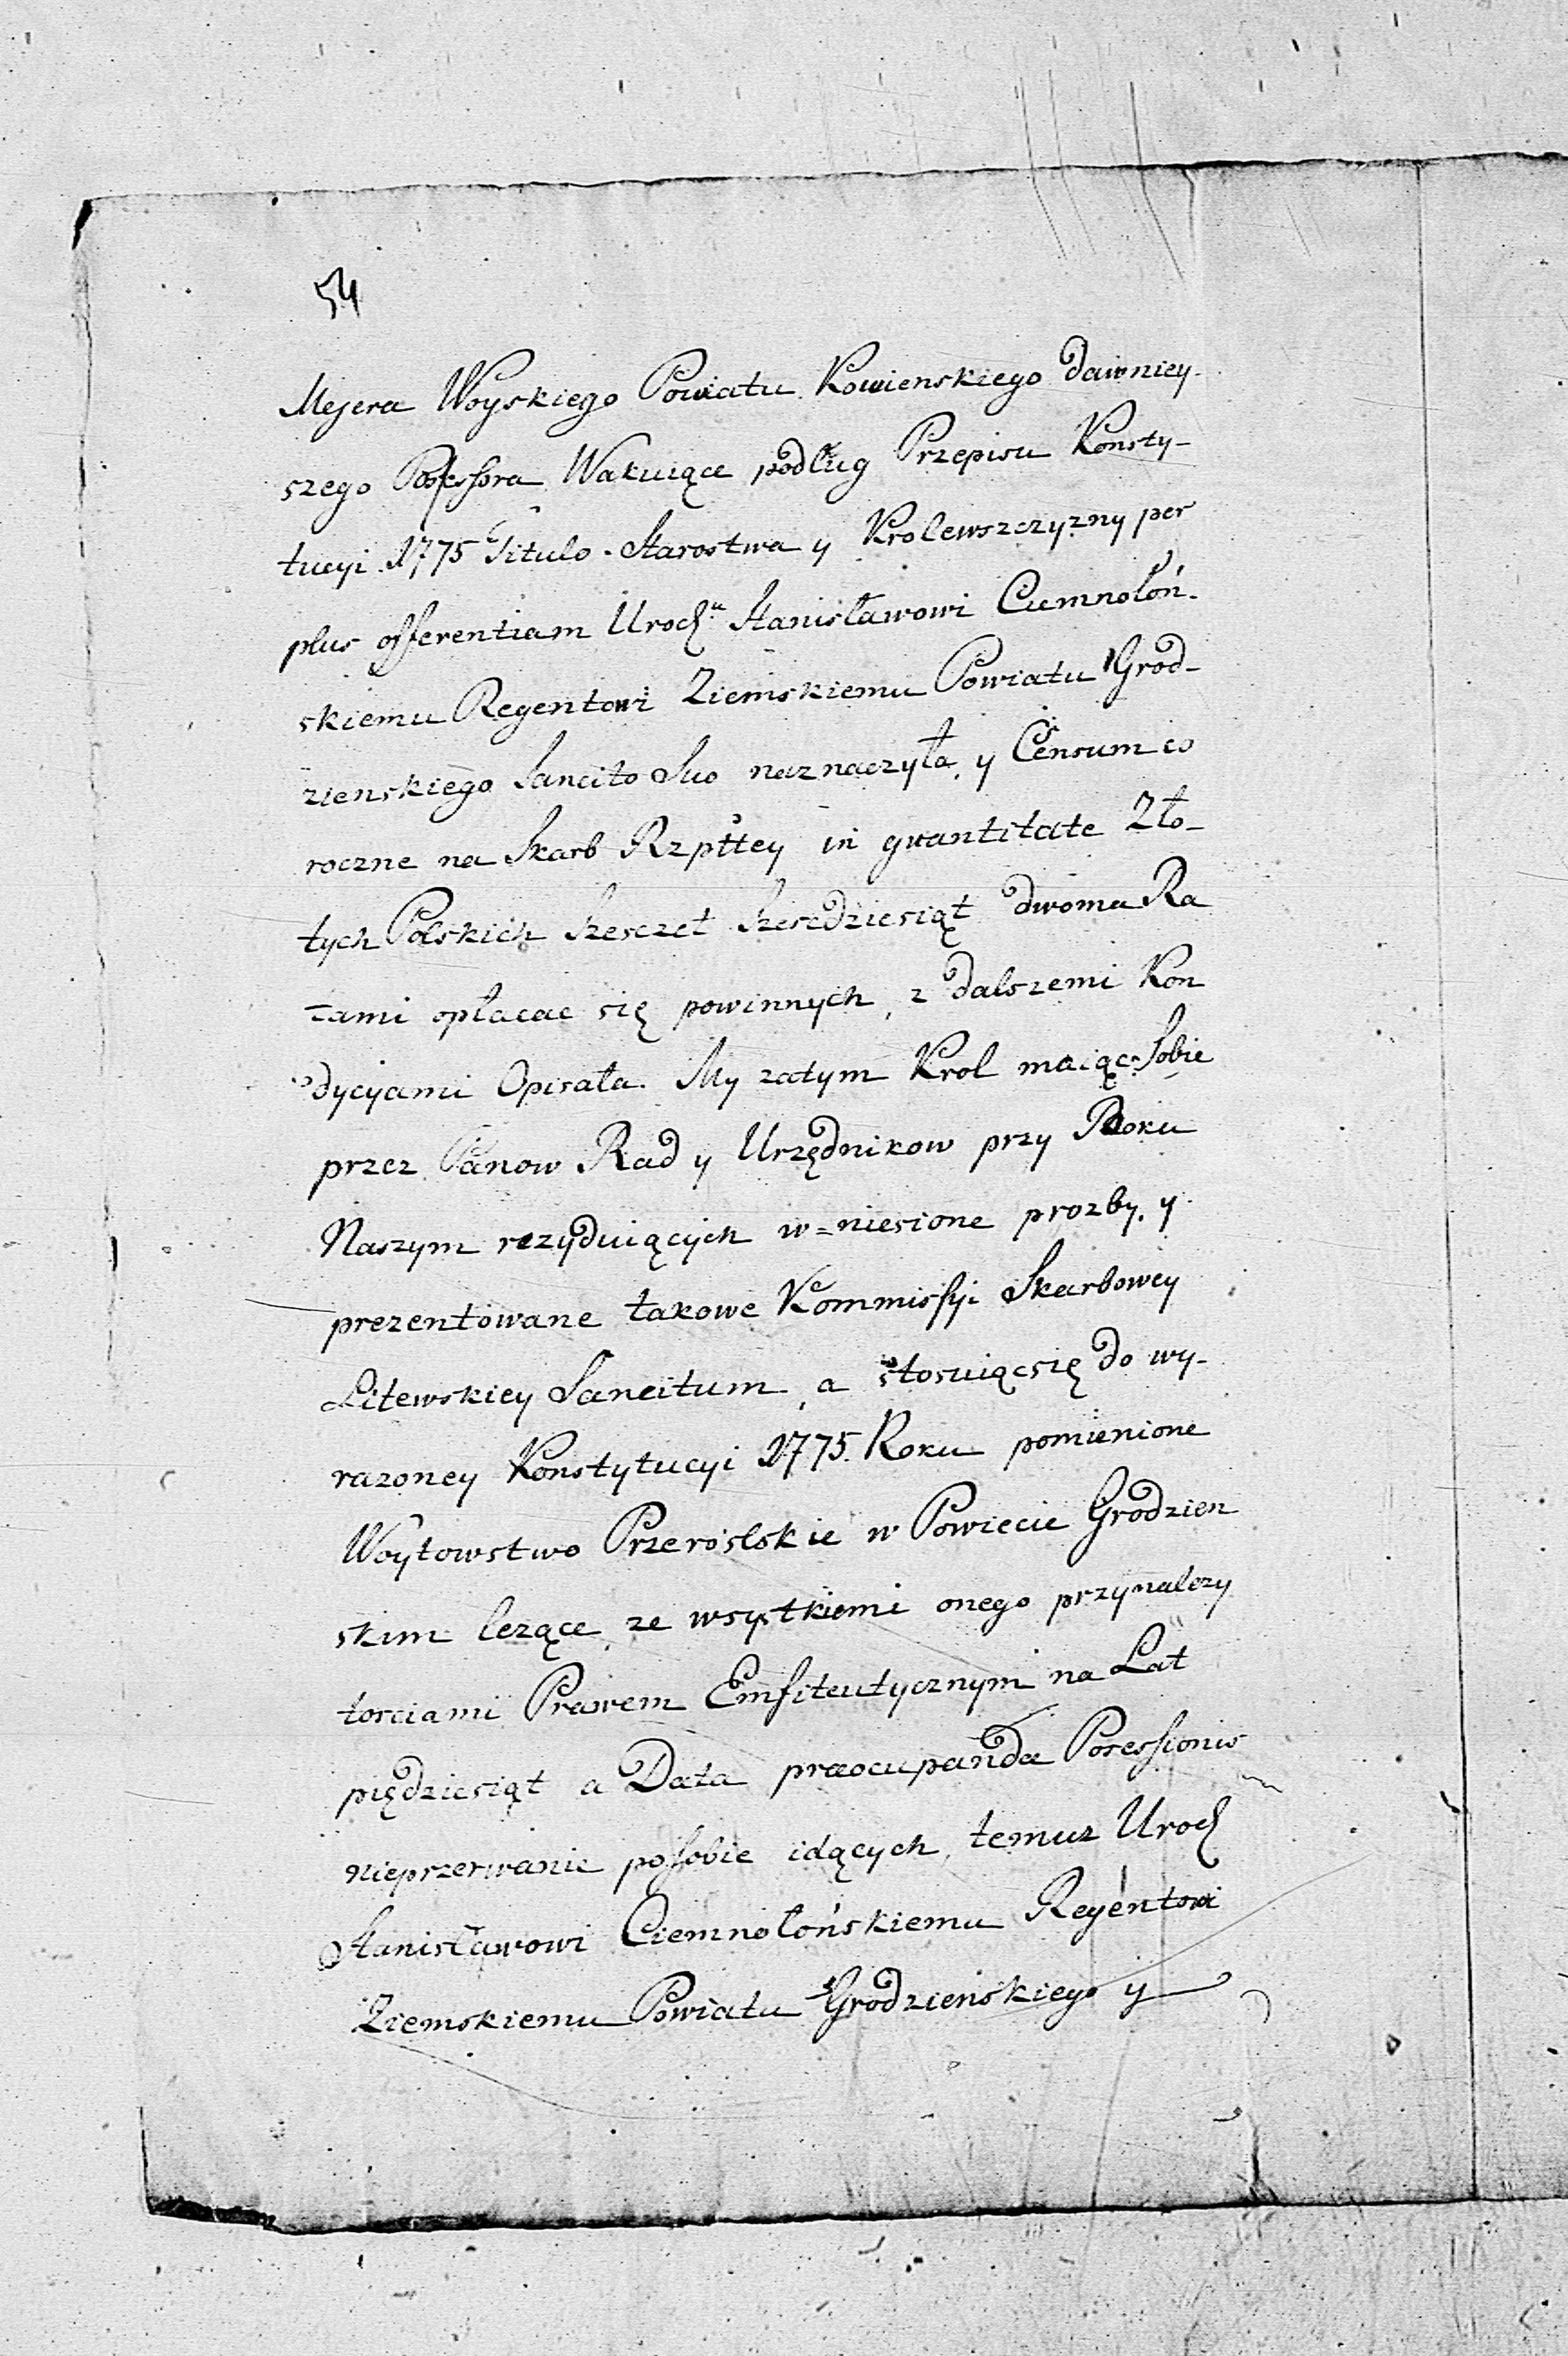 54
Mejera Woyskiego Powiatu Kowienskiego dawniey-
szego Possessora Wakuiące podług Przepisu Konsty-
tucyi 1775 Titulo Starostwa y Krolewszczyzny per
plus offerentiam Urodz. Stanisławowi Ciemnołoń-
skiemu Regentowi Ziemskiemu Powiatu Grod-
zienskiego Sancito Suo naznaczyła, y Censum co
roczne na Skarb Rzpltey in qwantitate Zło-
tych Polskich Szesczet Szescdziesiąt dwoma Ra
tami opłacac się powinnych, z dalszemi Kon
dycyami Opisała. My zatym Krol maiąc Sobie
przez Panow Rad y Urzędnikow przy Boku
Naszym rezyduiących w=niesione prozby, y
prezentowane takowe Kommissyi Skarbowey
Litewskiey Sancitum, a stosuiąc się do wy-
razoney Konstytucyi 1775. Roku pomienione
Woytowstwo Przeroslskie w Powiecie Grodzien
skim lezące, ze wsystkiemi onego przynalezy
tosciami Prawem Emfiteutycznym na Lat
piędziesiąt a Data praeocupandae Possessionis
nieprzerwanie posobie idących, temuz Urodz
Stanisławowi Ciemnołońskiemu Regentowi
Ziemskiemu Powiatu Grodzieńskiego y